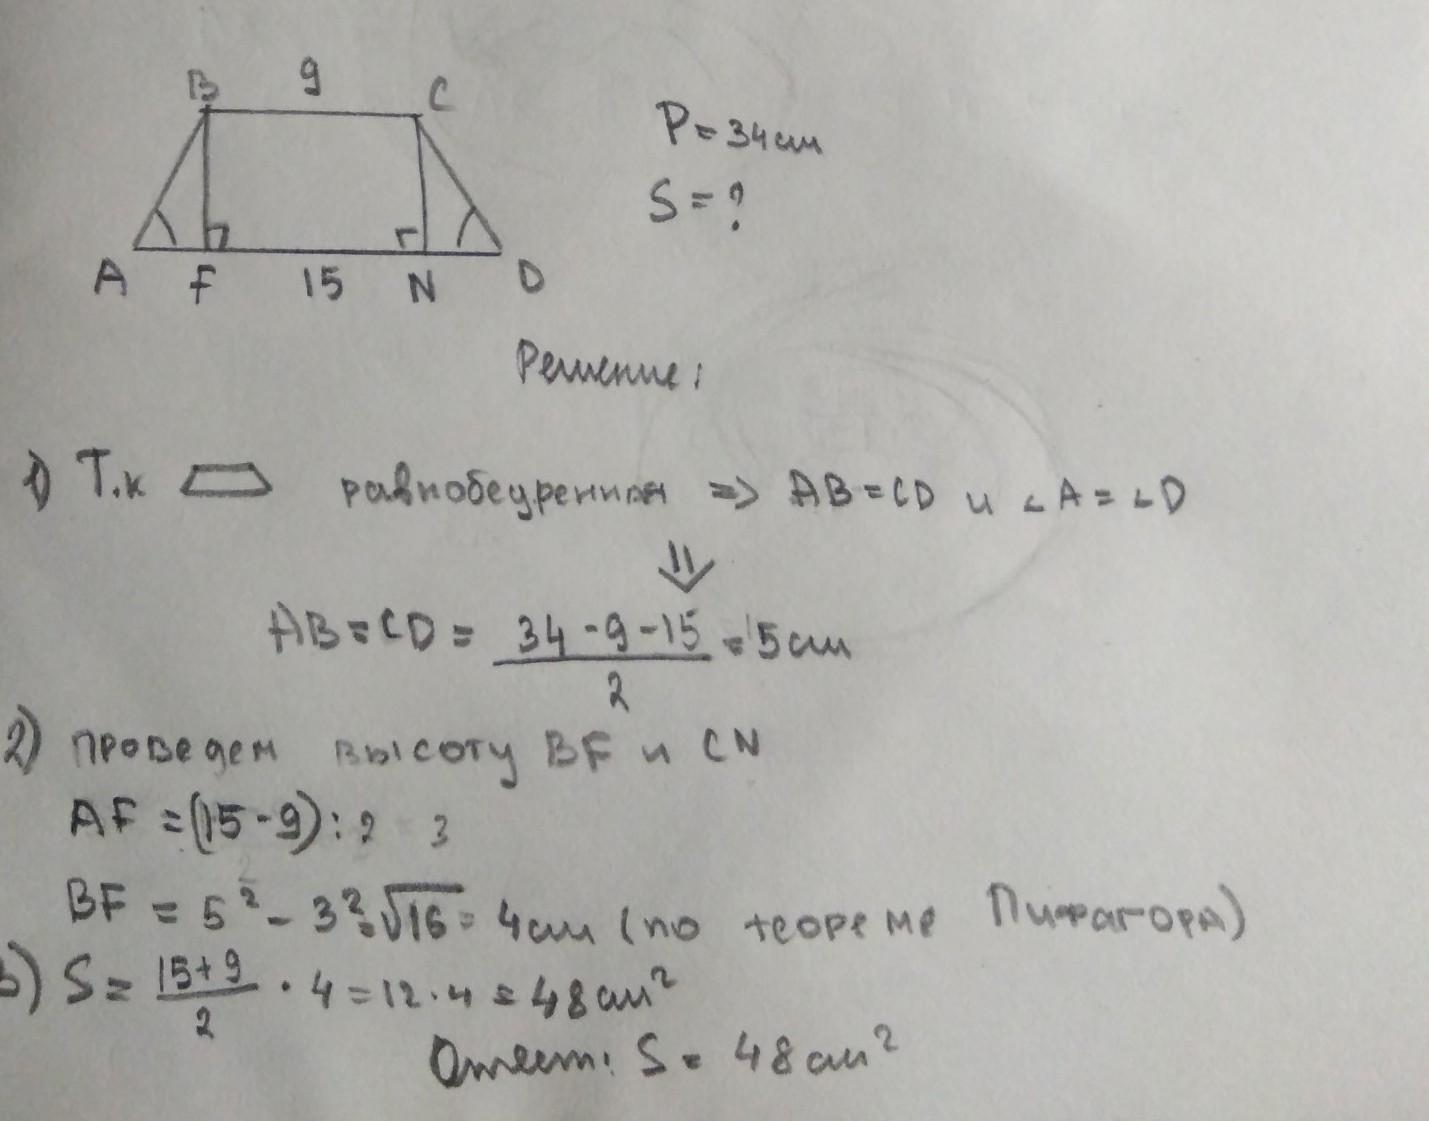 B 9 C
P = 34 см
S = ?
A F 15 N D
Решение:
1) Т.к равнобедренная => AB = CD и ∠A = ∠D
⇓
AB = CD = (34 - 9 - 15)/2 = 5 см
2) проведем высоту BF и CN
AF = (15 - 9) : 2 = 3
BF = 5² - 3² = √16 = 4 см (по теореме Пифагора)
3) S = (15 + 9)/2 · 4 = 12 · 4 = 48 см²
Ответ: S = 48 см²